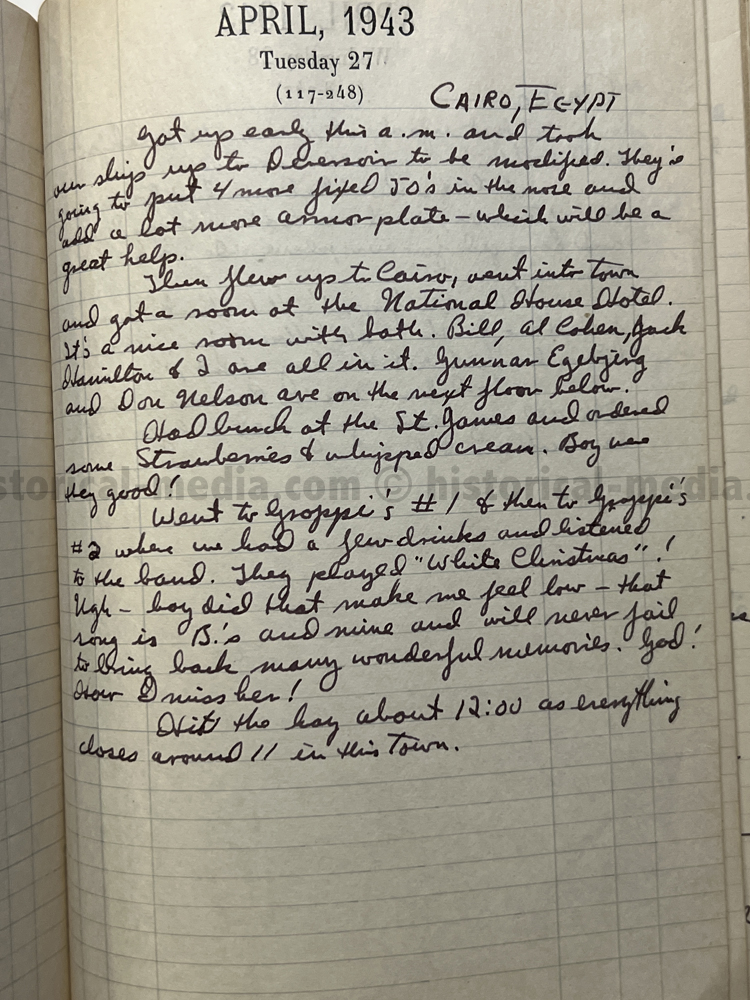 APRIL, 1943
Tuesday 27
(117-248)
CAIRO, EGYPT
Got up early this a.m. and took
our ships up to Deversoir to be modified. They're
going to put 4 more fixed 50's in the nose and
add a lot more armor plate – which will be a
great help.
Then flew up to Cairo, went into town
and got a room at the National House Hotel.
It's a nice room with bath. Bill, Al Cohen, Jack
Hamilton & I are all in it. Gunnar Egebjerg
and Don Nelson are on the next floor below.
Had lunch at the St. James and ordered
some Strawberries & whipped cream. Boy were
they good!
historical-media.com © historical-media.
Went to Groppi's #1 & then to Groppi's
#2 where we had a few drinks and listened
to the band. They played "White Christmas"!
Ugh – boy did that make me feel low – that
song is B.'s and mine and will never fail
to bring back many wonderful memories. God!
How I miss her!
Hit the hay about 12:00 as everything
closes around 11 in this Town.